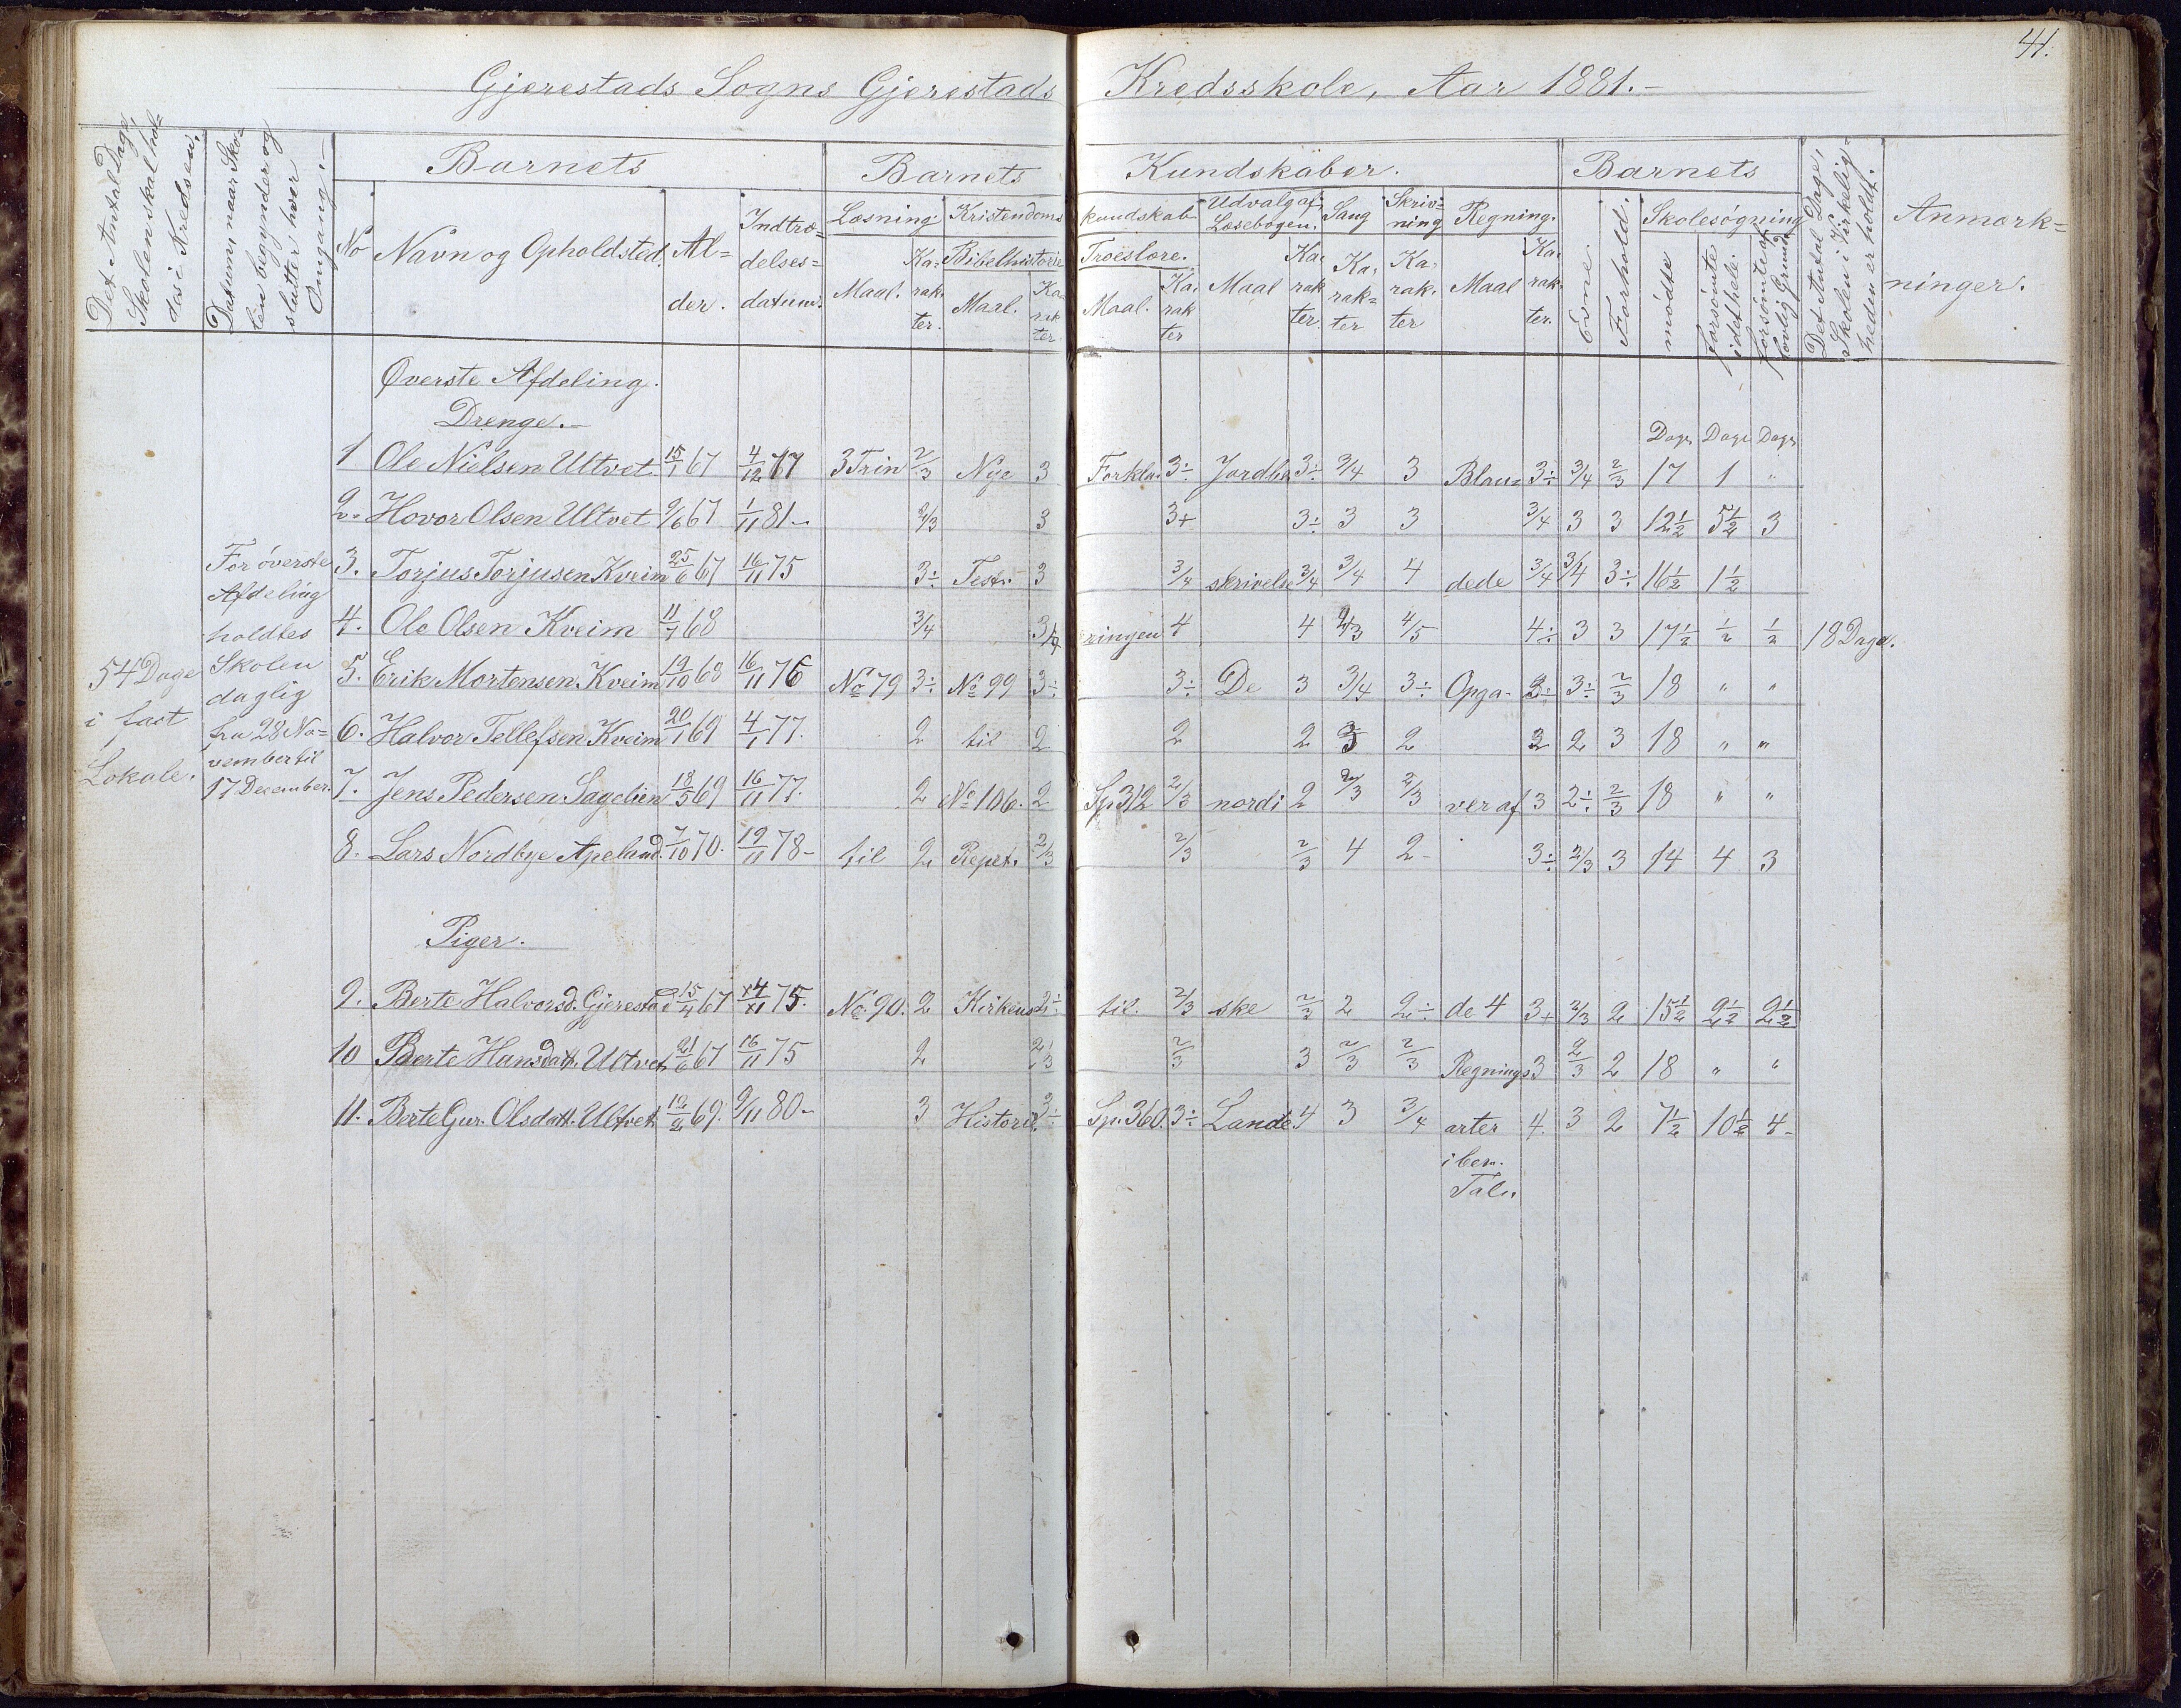 41.
Gjerestads Sogns Gjerestads Kredsskole, Aar 1881.-
Det Antal Dage, Skolen skal holdes i Kredsen.
Datum naar Skolen begynder og slutter hver Omgang.
Barnets
Barnets Kundskaber.
Barnets
Det Antal Dage, Skolen i Virkeligheden er holdt.
Anmærkninger.
No Navn og Opholdsted. Alder. Indtrædelsesdatum.
Læsning. Kristendomskundskab Udvalg af Læsebogen. Sang Skrivning Regning.
Evne. Forhold. Skolesøgning
Maal. Karakter. Bibelhistorie Maal. Karakter. Troeslære. Maal. Karakter Maal Karakter. Karakter Karakter Maal Karakter.
mødte forsømte i det hele. forsømte af lovlig Grund
Øverste Afdeling.
Drenge.-
Dage Dage Dage
1 Ole Nielsen Ultvet. 15/1 67 4/12 77 3 Trin 2/3 Nye 3 Forkla- 3÷ Jordbe 3÷ 3/4 3 Blan- 3÷ 3/4 2/3 17 1 "
2. Hovor Olsen Ultvet 9/6 67 1/11 81- 2/3 3 3+ 3÷ 3 3 3/4 3 3 12½ 5½ 3
3. Torjus Torjusen Kveim 25/6 67 16/11 75 3÷ Test. 3 3/4 skrivelse 3/4 3/4 4 dede 3/4 3/4 3÷ 16½ 1½
4. Ole Olsen Kveim 11/7 68 3/4 3/4 ringen 4 4 2/3 4/5 4÷ 3 3 17½ ½ ½ 18 Dage.
5. Erik Mortensen Kveim 19/10 68 16/11 76 No 79 3÷ No 99 3÷ 3÷ De 3 3/4 3÷ Opga- 3÷ 3÷ 2/3 18 " "
6. Halvor Tellefsen Kveim 20/1 69 4/1 77. 2 til 2 2 2 3 2 2 2 3 18 " "
7. Jens Pedersen Sagelien 18/5 69 16/11 77. 2 No 106. 2 Sp. 312 2/3 nordi 2 2/3 2/3 ver af 3 2÷ 2/3 18 " "
8. Lars Nordbye Apeland. 7/10 70. 19/11 78- til 2 Repet. 2/3 2/3 2/3 4 2- 3÷ 2/3 3 14 4 3
For øverste
Afdeling
holdtes
Skolen
daglig
fra 28 No-
vember til
17 December.
54 Dage
i fast
Lokale.
Piger.
9. Berte Halvorsd. Gjerestad 15/4 67 14/11 75. No. 90. 2 Kirkens 2÷ til. 2/3 ske 2/3 2 2÷ de 4 3+ 2/3 2 15½ 2½ 2½
10 Berte Hansdatt. Ultvet 21/6 67 16/11 75 2 2/3 2/3 3 2/3 2/3 Regnings 3 2/3 2 18 " "
11. Berte Gur. Olsdatt. Ultvet 12/2 69. 9/11 80- 3 Historie. 3÷ Sp. 360. 3÷ Lande 4 3 3/4 arter 4. 3 2 7½ 10½ 4-
i ben.
Tal.